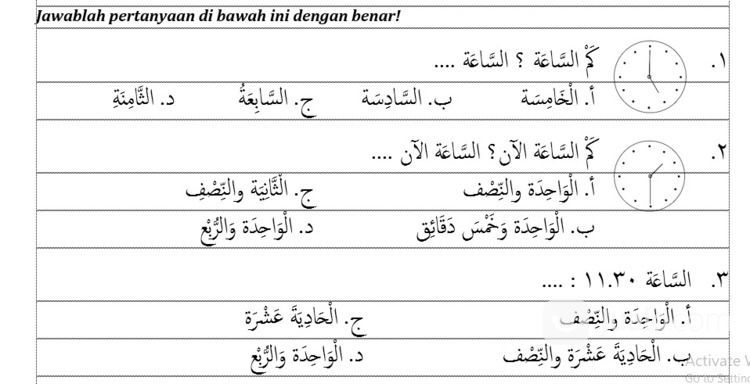 Jawablah pertanyaan di bawah ini dengan benar!
١. كَمْ السَّاعَة ؟ السَّاعَة ....
أ. الْخَامِسَة ب. السَّادِسَة ج. السَّابِعَةُ د. الثَّامِنَةِ
٢. كَمْ السَّاعَة الآن؟ السَّاعَة الآن ....
أ. الْوَاحِدَة والنِّصْف ج. الْثَّانِيَة والنِّصْفِ
ب. الْوَاحِدَة وَخَمْسَ دَقَائِق د. الْوَاحِدَة وَالرُّبْع
٣. السَّاعَة ١١.٣٠ : ....
أ. الْوَاحِدَة والنِّصْف ج. الْحَادِيَةَ عَشْرَة
ب. الْحَادِيَةَ عَشْرَة والنِّصْف د. الْوَاحِدَة وَالرُّبْع
Activate
Go to Settin